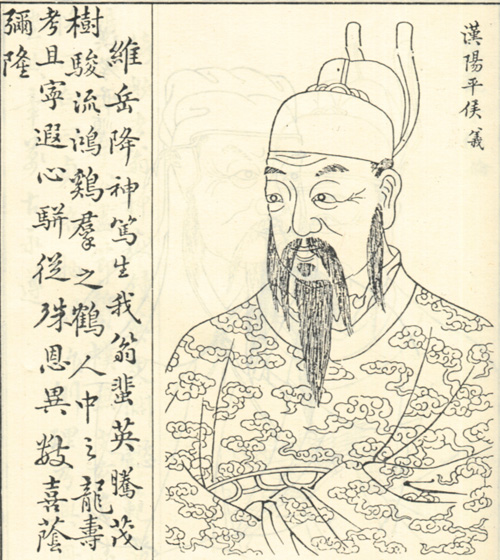 漢陽平侯 義
維岳降神篤生我翁蜚英騰茂
樹駿流鴻鷄羣之鶴人中之龍壽
考且寧遐心駢從殊恩異數喜蔭
彌隆